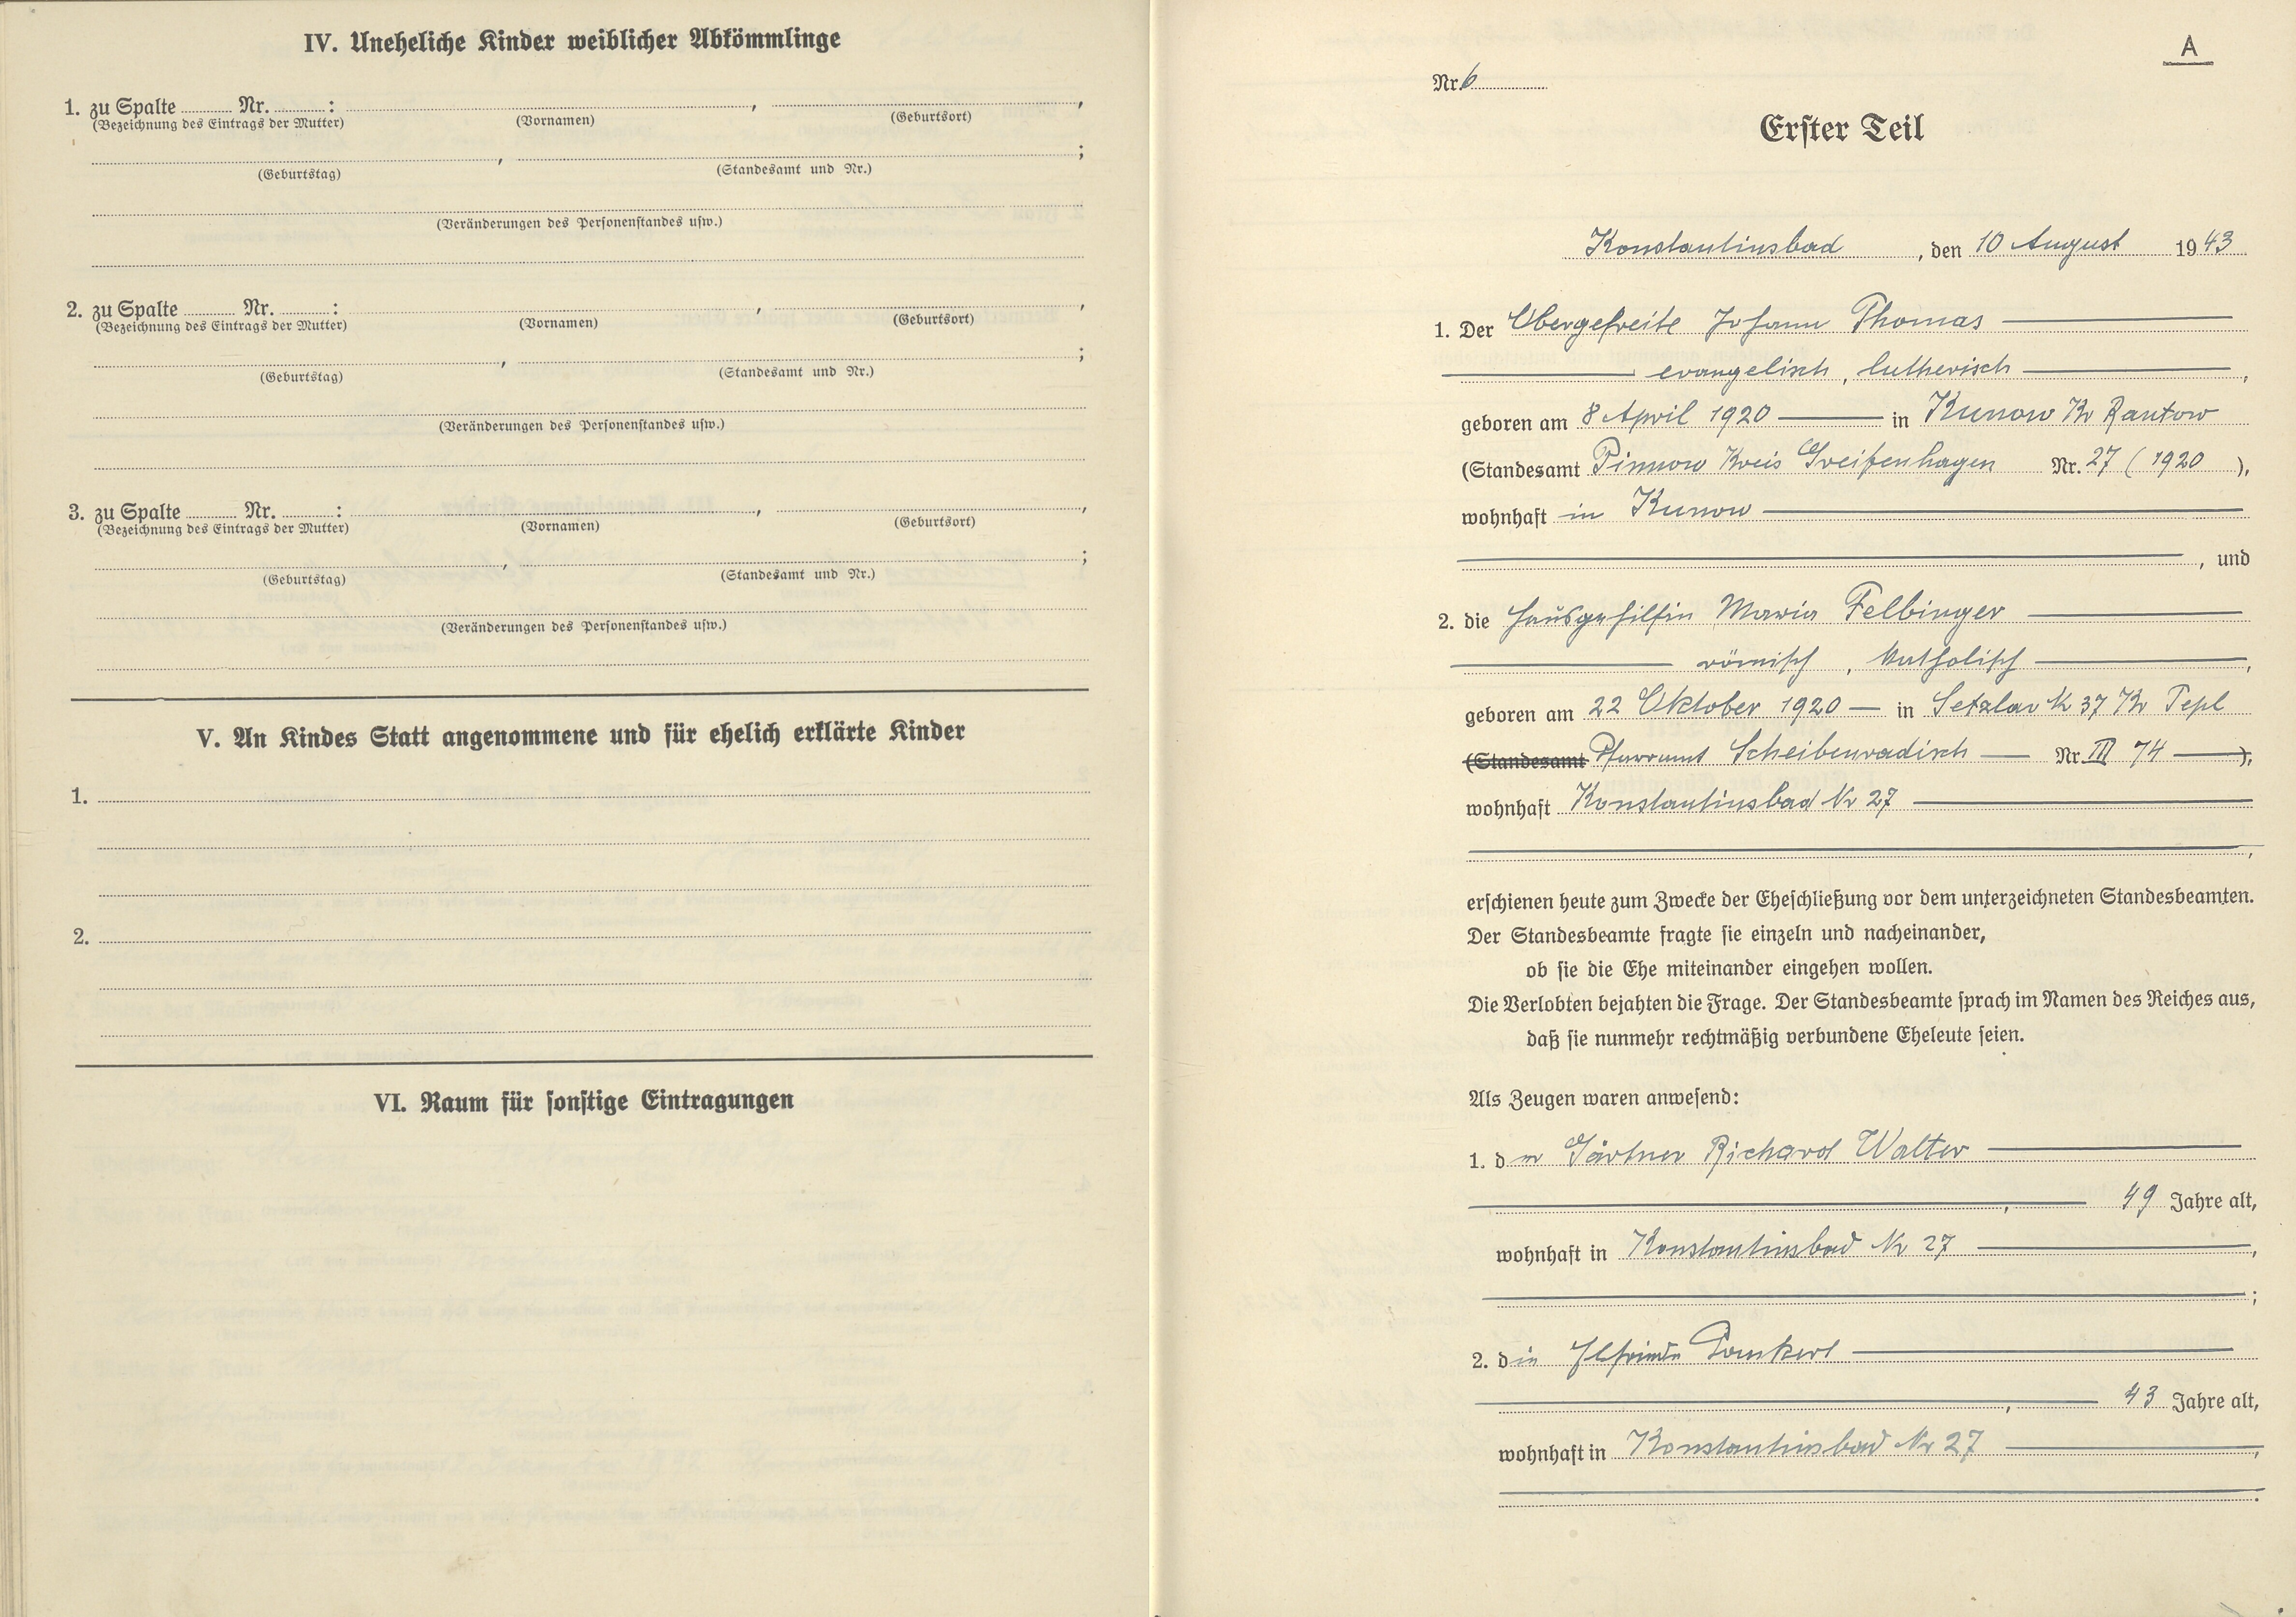 IV. Uneheliche Kinder weiblicher Abkömmlinge
1. zu Spalte ........ Nr. ........ : ........ , ........ ,
(Bezeichnung des Eintrags der Mutter) (Vornamen) (Geburtsort)
........ , ........ ;
(Geburtstag) (Standesamt und Nr.)
(Veränderungen des Personenstandes usw.)
2. zu Spalte ........ Nr. ........ : ........ , ........ ,
(Bezeichnung des Eintrags der Mutter) (Vornamen) (Geburtsort)
........ , ........ ;
(Geburtstag) (Standesamt und Nr.)
(Veränderungen des Personenstandes usw.)
3. zu Spalte ........ Nr. ........ : ........ , ........ ,
(Bezeichnung des Eintrags der Mutter) (Vornamen) (Geburtsort)
........ , ........ ;
(Geburtstag) (Standesamt und Nr.)
(Veränderungen des Personenstandes usw.)
V. An Kindes Statt angenommene und für ehelich erklärte Kinder
1.
2.
VI. Raum für sonstige Eintragungen
A
Nr. 6
Erster Teil
Konstantinsbad, den 10 August 1943
1. Der Obergefreite Johann Thomas
evangelisch, lutherisch,
geboren am 8 April 1920 in Kunow Kr
(Standesamt Pinnow Kreis Greifenhagen Nr. 27 (1920),
wohnhaft in Kunow
, und
2. die Hausgehilfin Maria Felbinger
römisch, katholisch,
geboren am 22 Oktober 1920 in Setzlau N 37 Kr Tepl
(Standesamt Pfarramt Scheibenradisch Nr. III 74),
wohnhaft Konstantinsbad Nr 27
,
erschienen heute zum Zwecke der Eheschließung vor dem unterzeichneten Standesbeamten.
Der Standesbeamte fragte sie einzeln und nacheinander,
ob sie die Ehe miteinander eingehen wollen.
Die Verlobten bejahten die Frage. Der Standesbeamte sprach im Namen des Reiches aus,
daß sie nunmehr rechtmäßig verbundene Eheleute seien.
Als Zeugen waren anwesend:
1. der Gärtner Richard Walter
, 49 Jahre alt,
wohnhaft in Konstantinsbad Nr 27,
;
2. die Elfriede
, 43 Jahre alt,
wohnhaft in Konstantinsbad Nr 27,
.